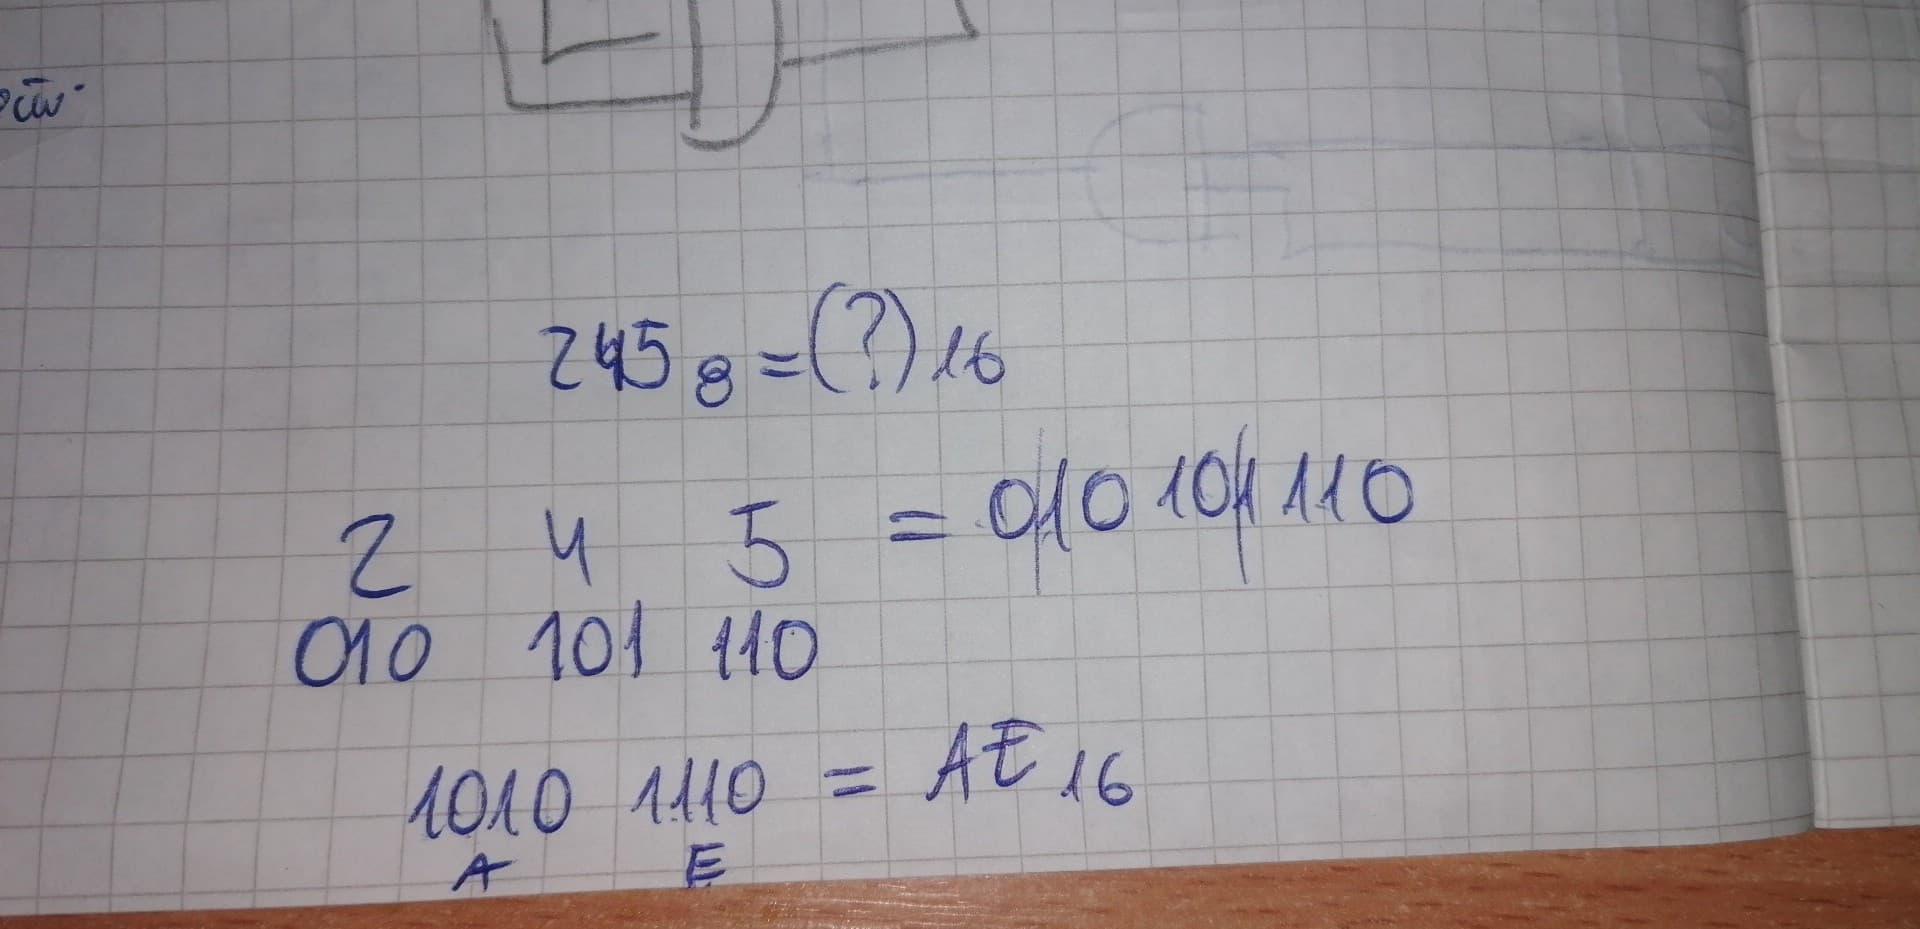 245 8 = (?) 16
2 4 5 = 010 101 110
010 101 110
1010 1110 = AE 16
A E